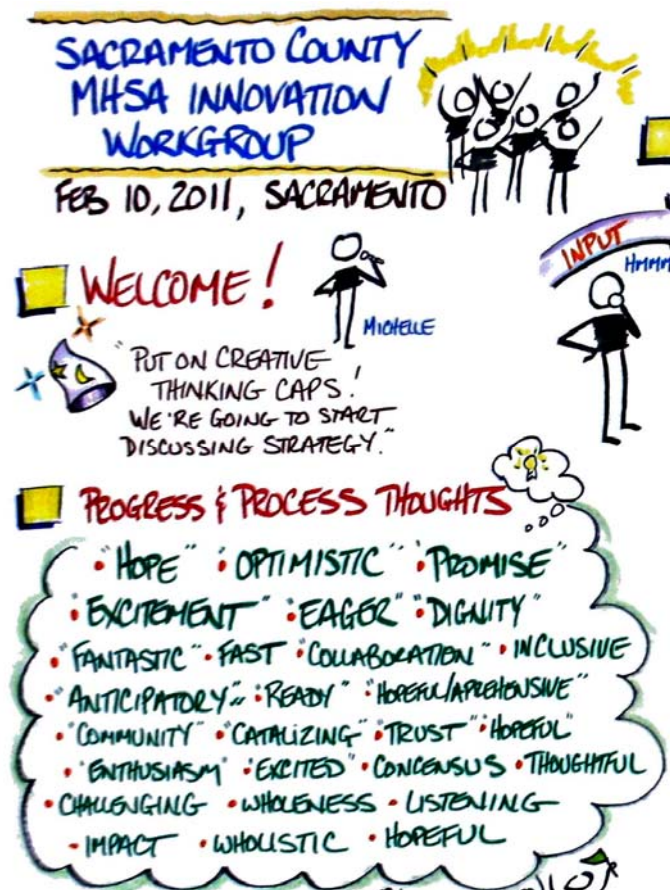 SACRAMENTO COUNTY
MHSA INNOVATION
WORKGROUP
FEB 10, 2011, SACRAMENTO
INPUT
HMMM
WELCOME!
MICHELLE
"PUT ON CREATIVE
THINKING CAPS!
WE'RE GOING TO START
DISCUSSING STRATEGY."
PROGRESS & PROCESS THOUGHTS
• "HOPE" • OPTIMISTIC" • "PROMISE"
• "EXCITEMENT" • "EAGER" • "DIGNITY"
• "FANTASTIC" • FAST • "COLLABORATION" • INCLUSIVE
• "ANTICIPATORY" • "READY" • "HOPEFUL/APREHENSIVE"
• "COMMUNITY" • "CATALIZING" • "TRUST" • "HOPEFUL"
• "ENTHUSIASM" • "EXCITED" • CONCENSUS • THOUGHTFUL
• CHALLENGING • WHOLENESS • LISTENING
• IMPACT • WHOLISTIC • HOPEFUL